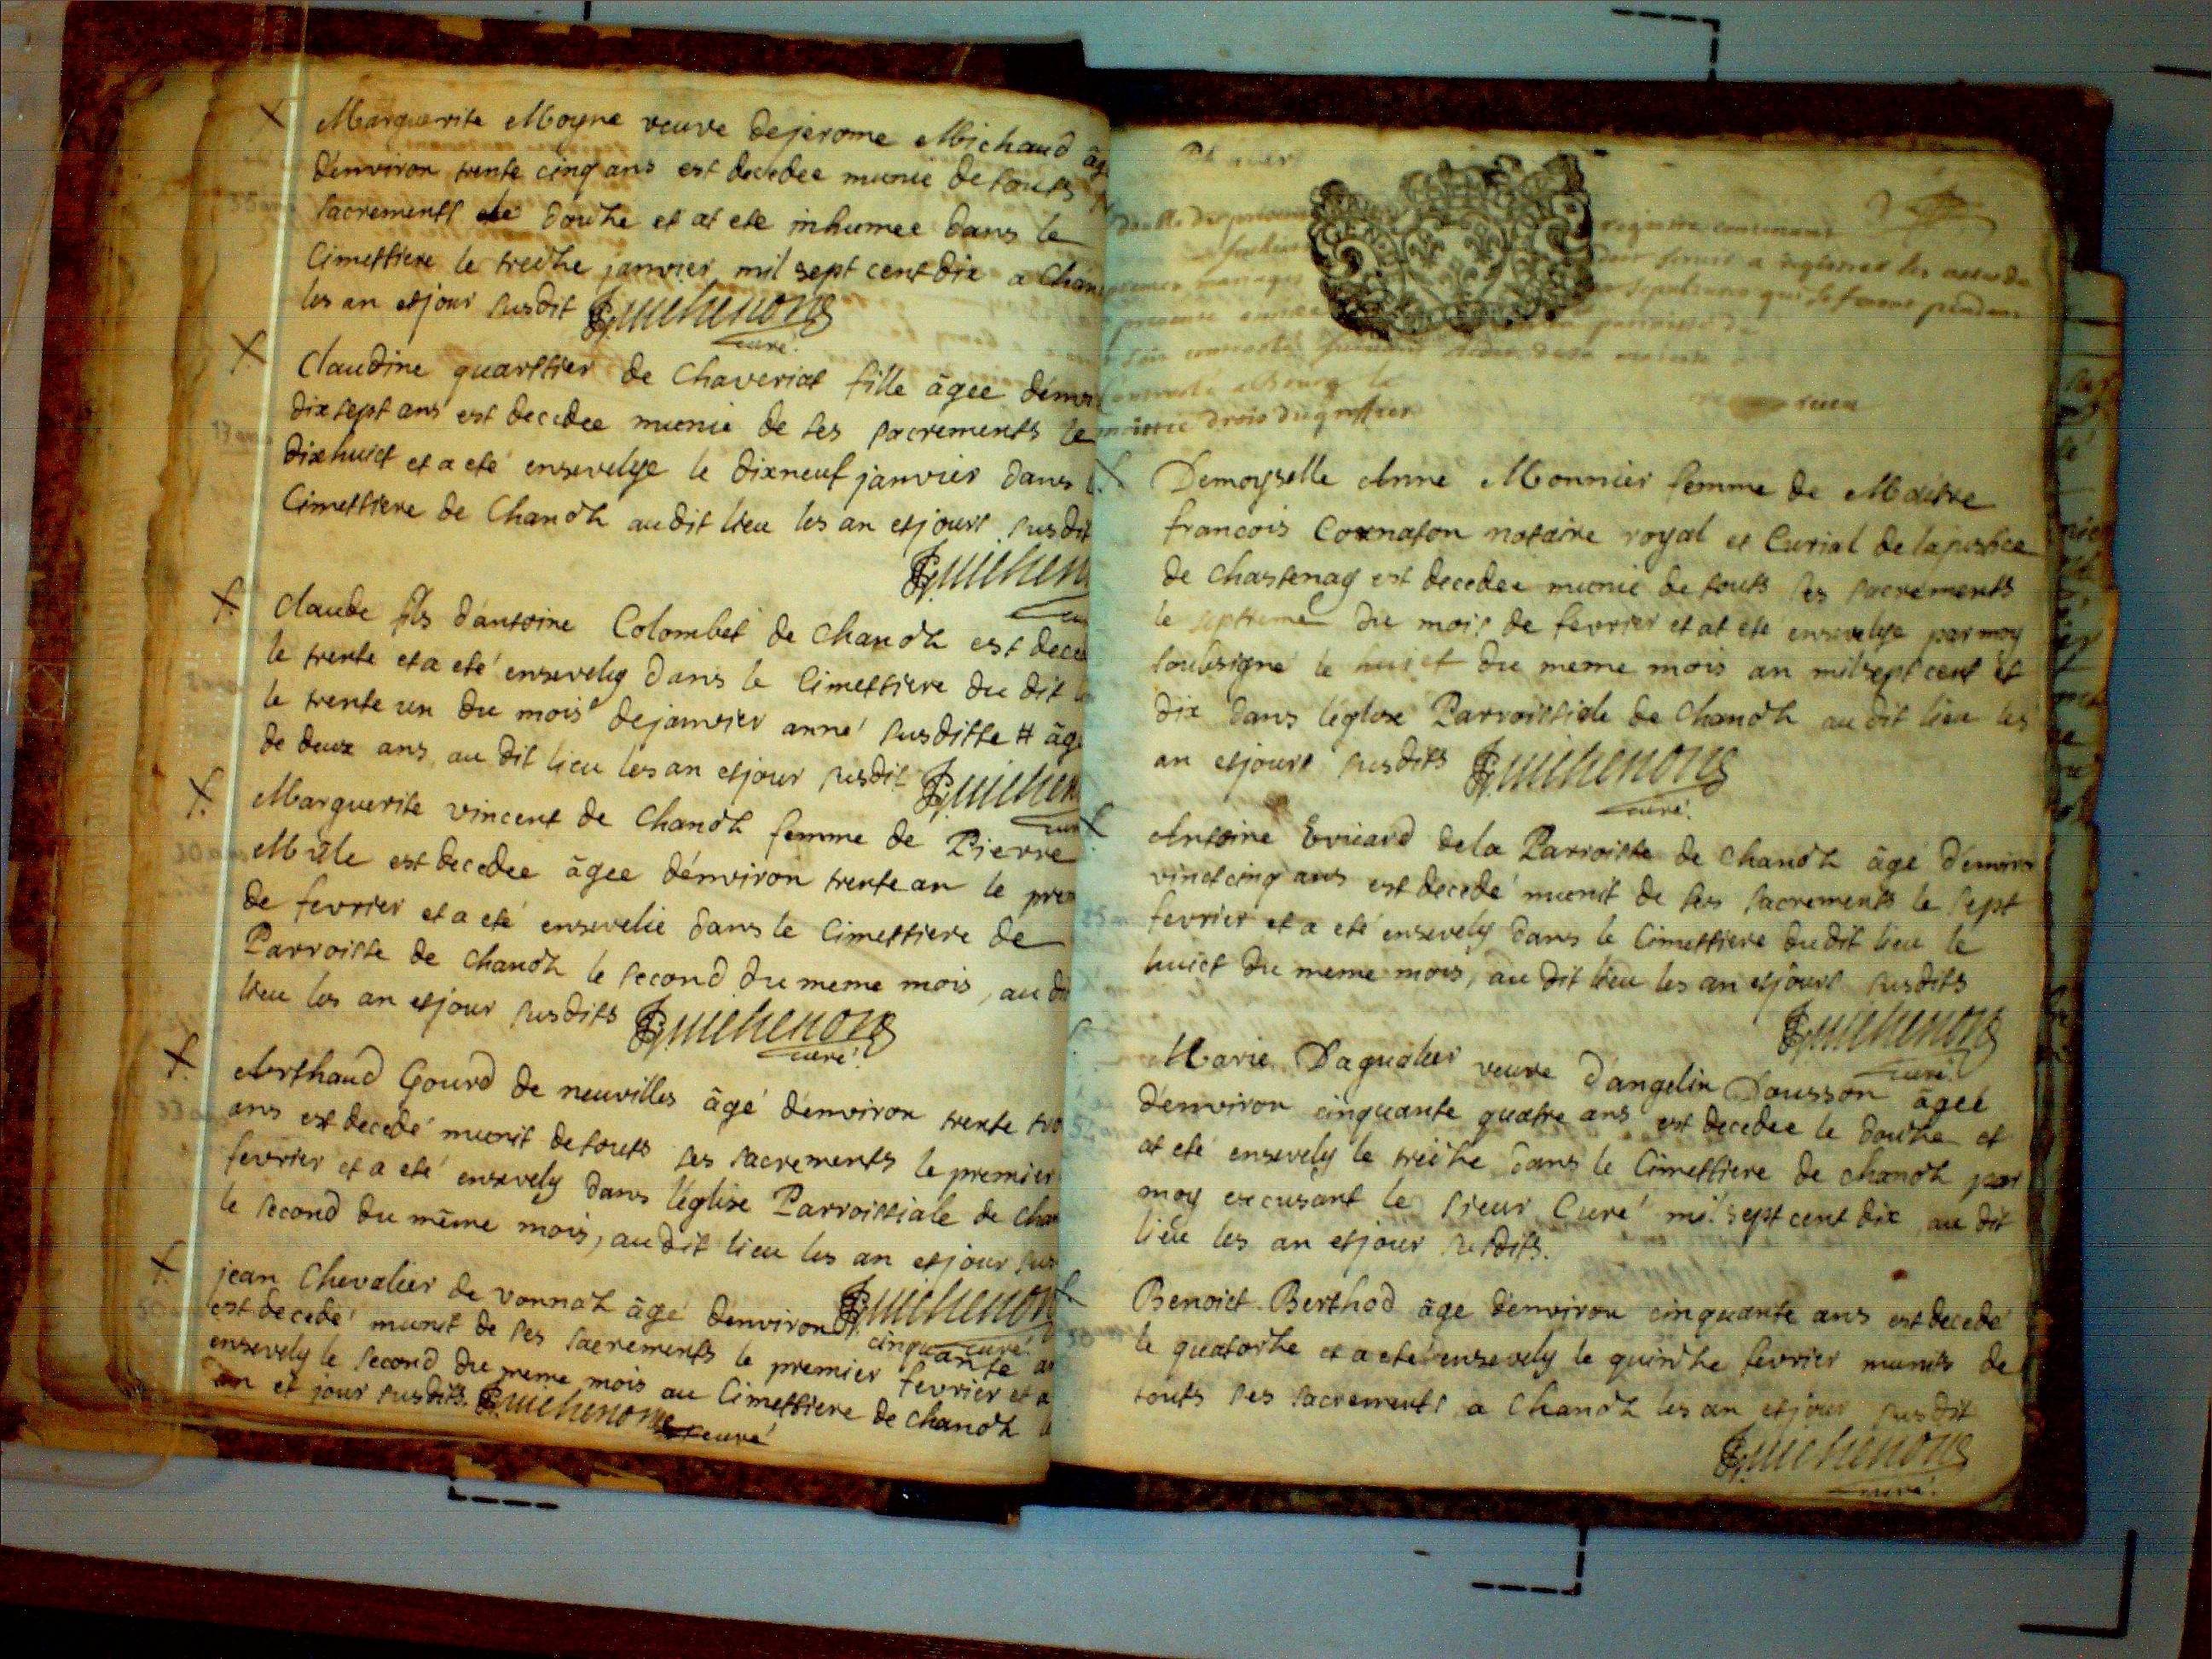 Marguerite Moyne veuve de jerome Michaud âg
d'environ trente cinq ans est decedee munie de touts
sacrements le douzhe et at ete inhumee dans le
Cimettiere le treizhe janvier mil sept cent dix a Chan
les an et jour susdit Guichenon
curé.
Claudine quarttier de Chaveriat fille âgee d'envi
dix sept ans est decedee munie de ses sacrements le
dixhuict et a eté ensevelye le dixneuf janvier dans
Cimettiere de Chanoz audit lieu les an et jours susdit
Guichen
Claude fils d'antoine Colombet de Chanoz est dece
le trente et a eté ensevely dans le Cimettiere du dit
le trente un du mois de janvier anné susditte # âg
de deux ans, au dit lieu les an et jour susdit Guichen
Marguerite vincent de Chanoz femme de Pierre
Mûle est decedee âgee d'environ trente an le prem
de fevrier et a eté ensevelie dans le Cimettiere de
Parroisse de Chanoz le second du meme mois, au di
lieu les an et jour susdits Guichenon
curé.
Arthaud Gourd de neuvilles âgé d'environ trente tro
ans est decedé munit de touts ses sacrements le premier
fevrier et a eté ensevely dans l'église Parroissiale de chan
le second du même mois, au dit lieu les an et jour sus
Guichenon
curé.
jean Chevalier de vonnaz âgé d'environ cinquante an
est decedé munit de ses sacrements le premier fevrier et a
ensevely le second du meme mois au Cimettiere de Chanoz
an et jour susdits. Guichenon curé
registre contenant
servir a registrer les actes de
mariages sepultures qui se feront pendant
presente année parroisse de
a Bourg le
drois du greffier
Demoyselle Anne Monnier femme de Maitre
francois Cornaton notaire royal et Curial de la justice
de chastenay est decedee munie de touts ses sacrements
le septieme du mois de fevrier et at eté ensevelye par moy
soubsigné le huict du meme mois an mil sept cent et
dix dans l'églose Parroissiale de Chanoz au dit lieu les
an et jours susdits Guichenon
curé.
Antoine Evrard de la Parroisse de Chanoz âgé d'environ
vinct cinq ans est decedé munit de ses sacrements le sept
fevrier et a eté ensevely dans le Cimettiere du dit lieu le
huict du meme mois, au dit lieu les an et jours susdits
Guichenon
curé.
Marie Dagualier veuve d'angelin Dousson âgee
d'environ cinquante quatre ans est decedee le douzhe et
at eté ensevely le treizhe dans le Cimettiere de chanoz par
moy excusant le sieur Curé mil sept cent dix au dit
lieu les an et jour susdits.
Benoict Berthod âgé d'environ cinquante ans est decedé
le quatorzhe et a eté ensevely le quinzhe fevrier munit de
touts ses sacrements a Chanoz les an et jour susdit
Guichenon
curé.